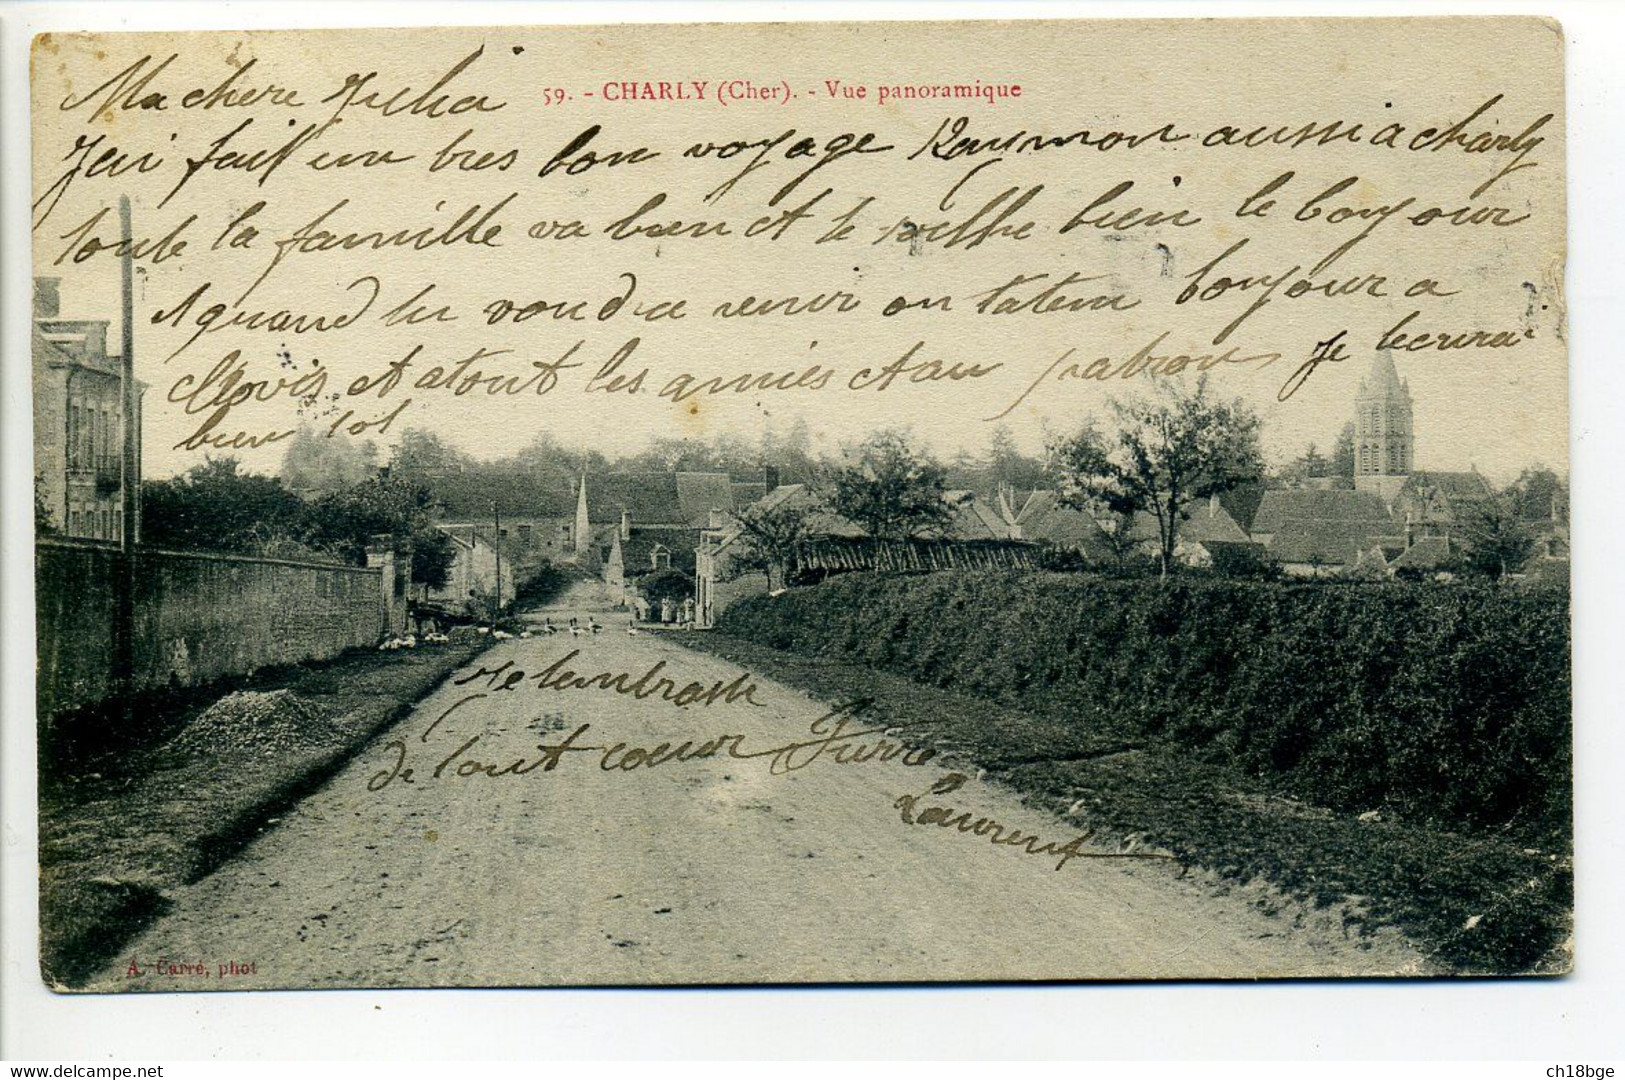 59. - CHARLY (Cher). - Vue panoramique
Ma chere Julia
J'ai fait un tres bon voyage Raymon aussi a charly
toute la famille va bien et te souhe bien le bonjour
quand tu voudra venir on tatem bonjour a
Clovis et atout les amies et au patron je tecrirai
bien tot
je tembrasse
de tout coeur
Laurent
A. Carré, phot
www.delcampe.net
ch18bge